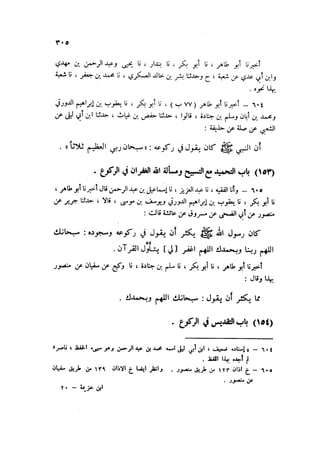 ٣٠٥
أخبرنا أبو طاهر ، نا أبو بكر ، نا بندار ، نا يحيى وعبد الرحمن بن مهدي
وابن أبي عدي عن شعبة ؛ ح وحدثنا بشر بن خالد العسكري ، نا محمد بن جعفر ، نا شعبة
بهذا نحوه .
٦٠٤ – أخبرنا أبو طاهر (٧٧ ب) ، نا أبو بكر ، نا يعقوب بن إبراهيم الدورقي
ومحمد بن أبان وسلم بن جنادة ، قالوا ، حدثنا حفص بن غياث ، حدثنا ابن أبي ليلى عن
الشعبي عن صلة عن حذيفة :
أن النبي ﷺ كان يقول في ركوعه : «سبحان ربي العظيم ثلاثاً» .
(١٥٣) باب التحميد مع التسبيح ومسألة الله الغفران في الركوع .
٦٠٥ – وأنا الفقيه ، نا عبد العزيز ، نا إسماعيل بن عبد الرحمن قال أخبرنا أبو طاهر ،
نا أبو بكر ، نا يعقوب بن إبراهيم الدورقي ويوسف بن موسى ، قالا ، حدثنا جرير عن
منصور عن أبي الضحى عن مسروق عن عائشة قالت :
كان رسول الله ﷺ يكثر أن يقول في ركوعه وسجوده : سبحانك
اللهم ربنا وبحمدك اللهم اغفر [ لي ] يتأول القرآن .
أخبرنا أبو طاهر ، نا أبو بكر ، نا سلم بن جنادة ، نا وكيع عن سفيان عن منصور
بهذا وقال :
مما يكثر أن يقول : سبحانك اللهم وبحمدك .
(١٥٤) باب التقديس في الركوع .
٦٠٤ – «إسناده ضعيف ، ابن أبي ليلى اسمه محمد بن عبد الرحمن وهو سيىء الحفظ ، ناصر»
لم أجده بهذا اللفظ .
٦٠٥ – خ أذان ١٢٣ من طريق منصور . وانظر أيضا خ الاذان ١٣٩ من طريق سفيان
عن منصور .
ابن خزيمة – ٢٠